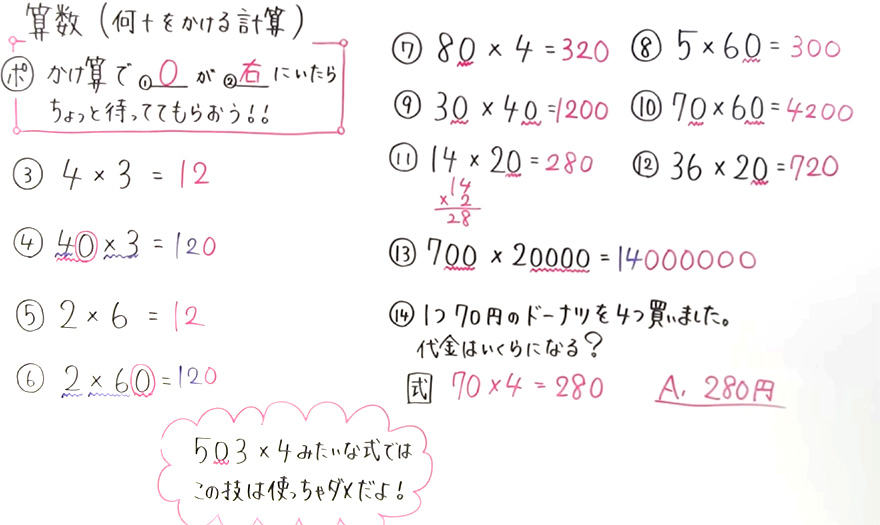 算数(何十をかける計算)
㋭ かけ算で ①0 が ②右 にいたら
ちょっと待っててもらおう!!
③ 4×3 = 12
④ 40×3 = 120
⑤ 2×6 = 12
⑥ 2×60 = 120
503×4みたいな式では
この技は使っちゃダメだよ!
⑦ 80×4 = 320
⑧ 5×60 = 300
⑨ 30×40 = 1200
⑩ 70×60 = 4200
⑪ 14×20 = 280
14
×2
28
⑫ 36×20 = 720
⑬ 700×20000 = 14000000
⑭ 1つ70円のドーナツを4つ買いました。
代金はいくらになる?
式 70×4 = 280
A. 280円